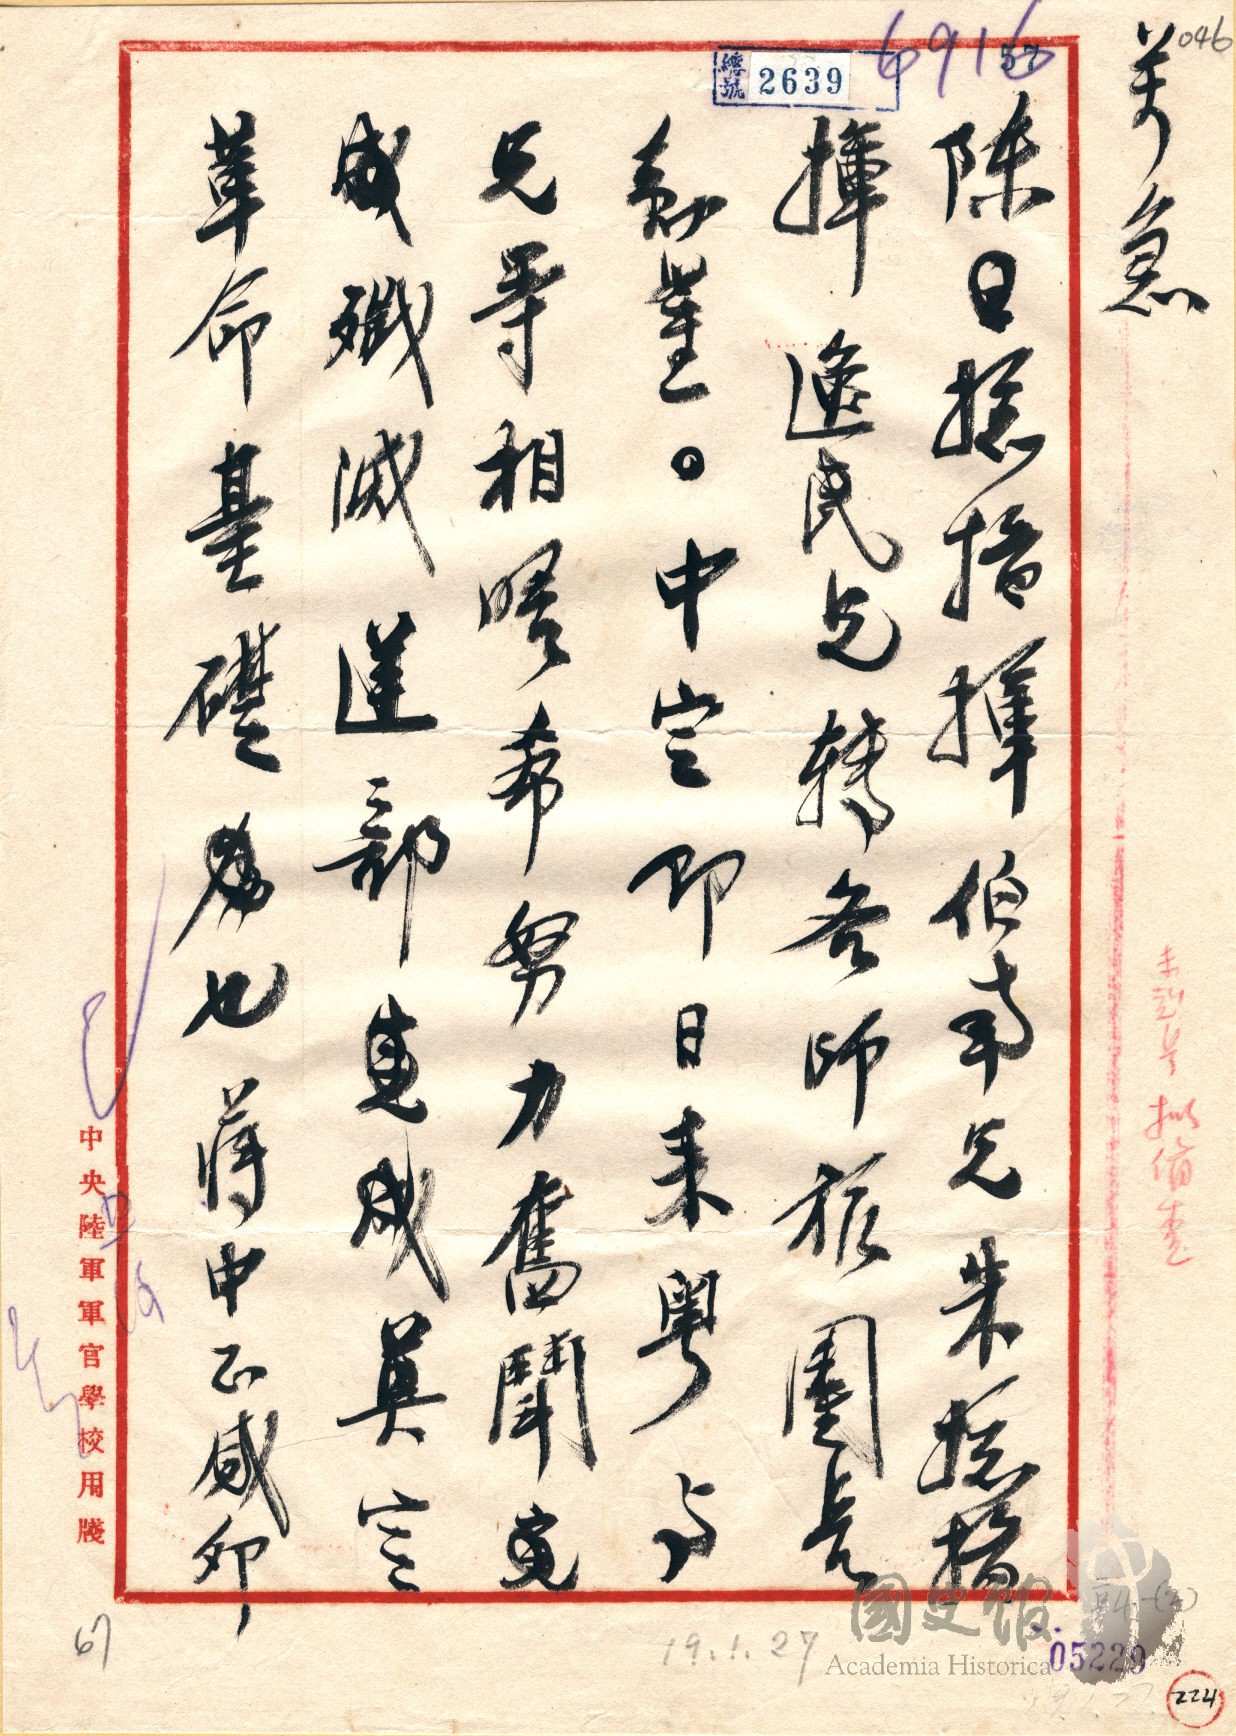 萬急
046
6916
57
總號 2639
陳日總指揮伯南兄朱總指
揮逸民兄轉各師旅團長
勳鑒。中定即日來粵與
兄等相晤希努力奮鬥完
成殲滅逆部造成奠定
革命基礎為也蔣中正感卯
中央陸軍軍官學校用牋
擬備查
67
19.1.27
國史館
Academia Historica
05229
224